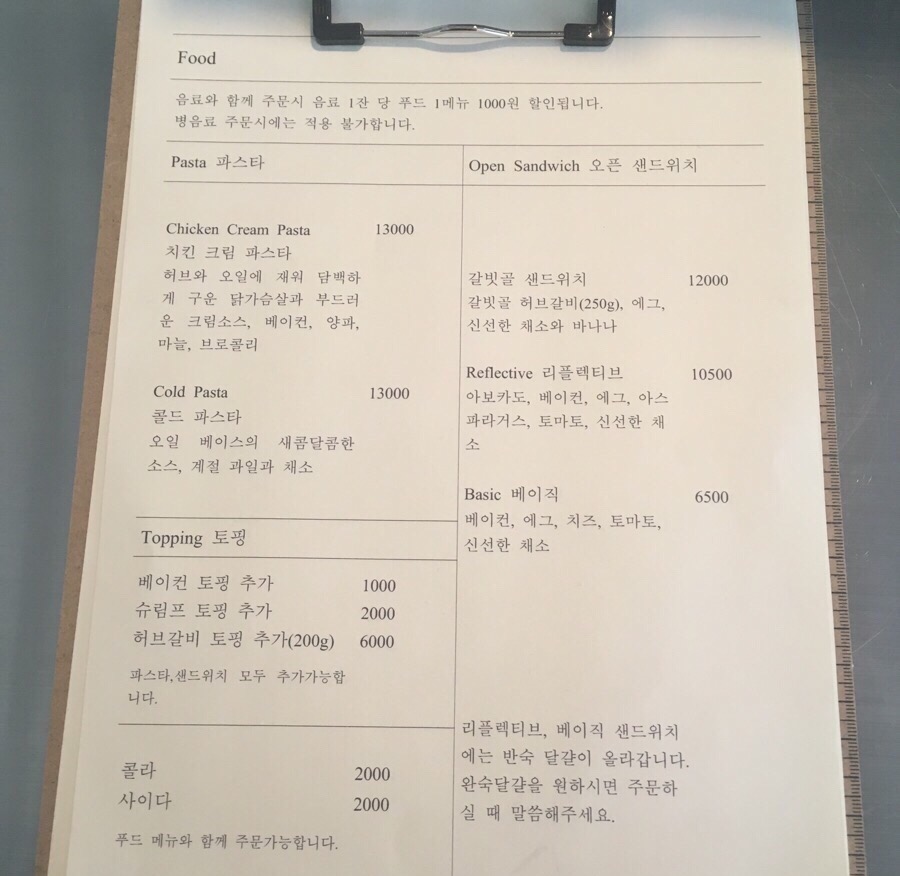 Food
음료와 함께 주문시 음료 1잔 당 푸드 1메뉴 1000원 할인됩니다.
병음료 주문시에는 적용 불가합니다.
Pasta 파스타
Chicken Cream Pasta 13000
치킨 크림 파스타
허브와 오일에 재워 담백하
게 구운 닭가슴살과 부드러
운 크림소스, 베이컨, 양파,
마늘, 브로콜리
Cold Pasta 13000
콜드 파스타
오일 베이스의 새콤달콤한
소스, 계절 과일과 채소
Topping 토핑
베이컨 토핑 추가 1000
슈림프 토핑 추가 2000
허브갈비 토핑 추가(200g) 6000
파스타,샌드위치 모두 추가가능합
니다.
콜라 2000
사이다 2000
푸드 메뉴와 함께 주문가능합니다.
Open Sandwich 오픈 샌드위치
갈빗골 샌드위치 12000
갈빗골 허브갈비(250g), 에그,
신선한 채소와 바나나
Reflective 리플렉티브 10500
아보카도, 베이컨, 에그, 아스
파라거스, 토마토, 신선한 채
소
Basic 베이직 6500
베이컨, 에그, 치즈, 토마토,
신선한 채소
리플렉티브, 베이직 샌드위치
에는 반숙 달걀이 올라갑니다.
완숙달걀을 원하시면 주문하
실 때 말씀해주세요.